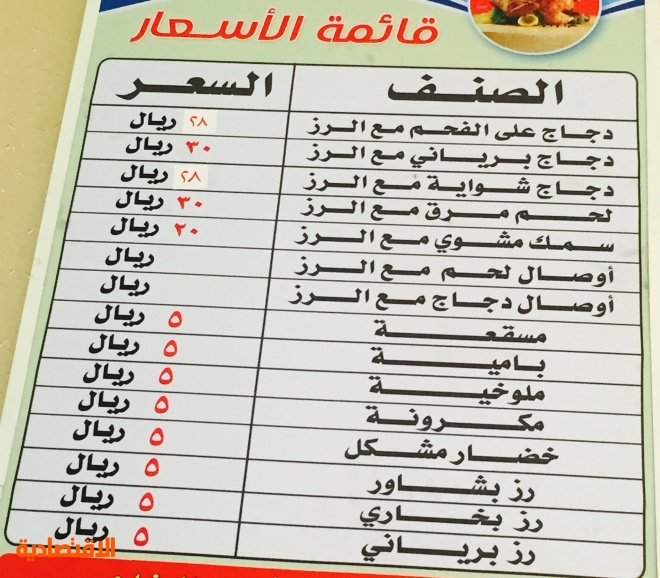 قائمة الأسعار
الصنف السعر
دجاج على الفحم مع الرز ٢٨ ريال
دجاج برياني مع الرز ٣٠ ريال
دجاج شواية مع الرز ٢٨ ريال
لحم مرق مع الرز ٣٠ ريال
سمك مشوي مع الرز ٢٠ ريال
أوصال لحم مع الرز ريال
أوصال دجاج مع الرز ريال
مسقعة ٥ ريال
بامية ٥ ريال
ملوخية ٥ ريال
مكرونة ٥ ريال
خضار مشكل ٥ ريال
رز بشاور ٥ ريال
رز بخاري ٥ ريال
رز برياني ٥ ريال
الاقتصادية